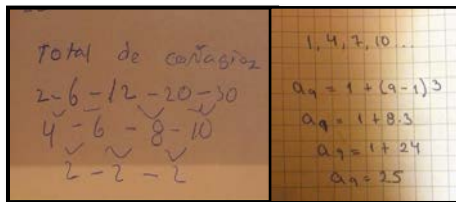 Total de contagios
2-6-12-20-30
4-6-8-10
2-2-2
1, 4, 7, 10...
a9 = 1 + (9-1)3
a9 = 1+8·3
a9 = 1+24
a9 = 25